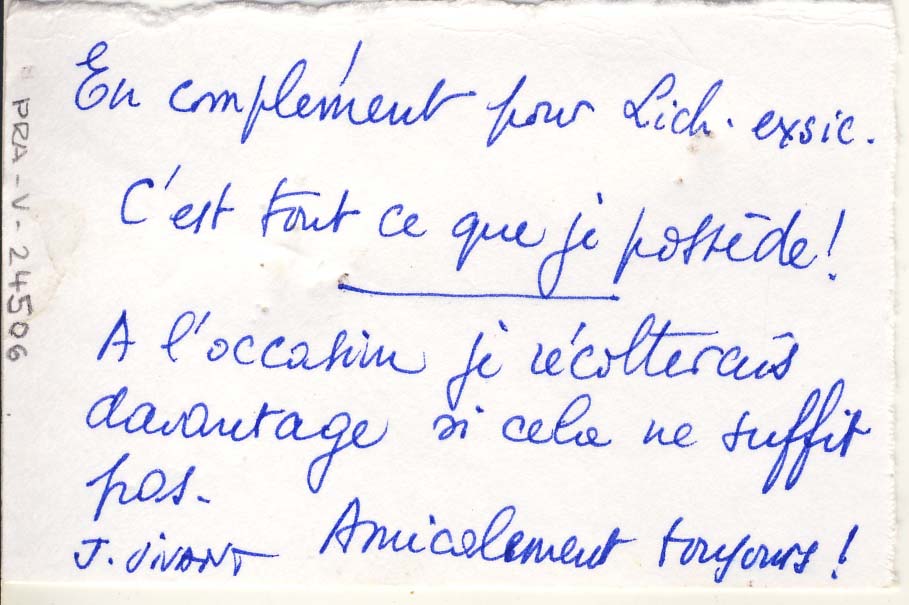 En complément pour Lich. exsic.
C'est tout ce que je possède!
A l'occasion je récolterais
davantage si cela ne suffit
pas.
Amicalement toujours!
J. VIVANT
PRA-V-24506